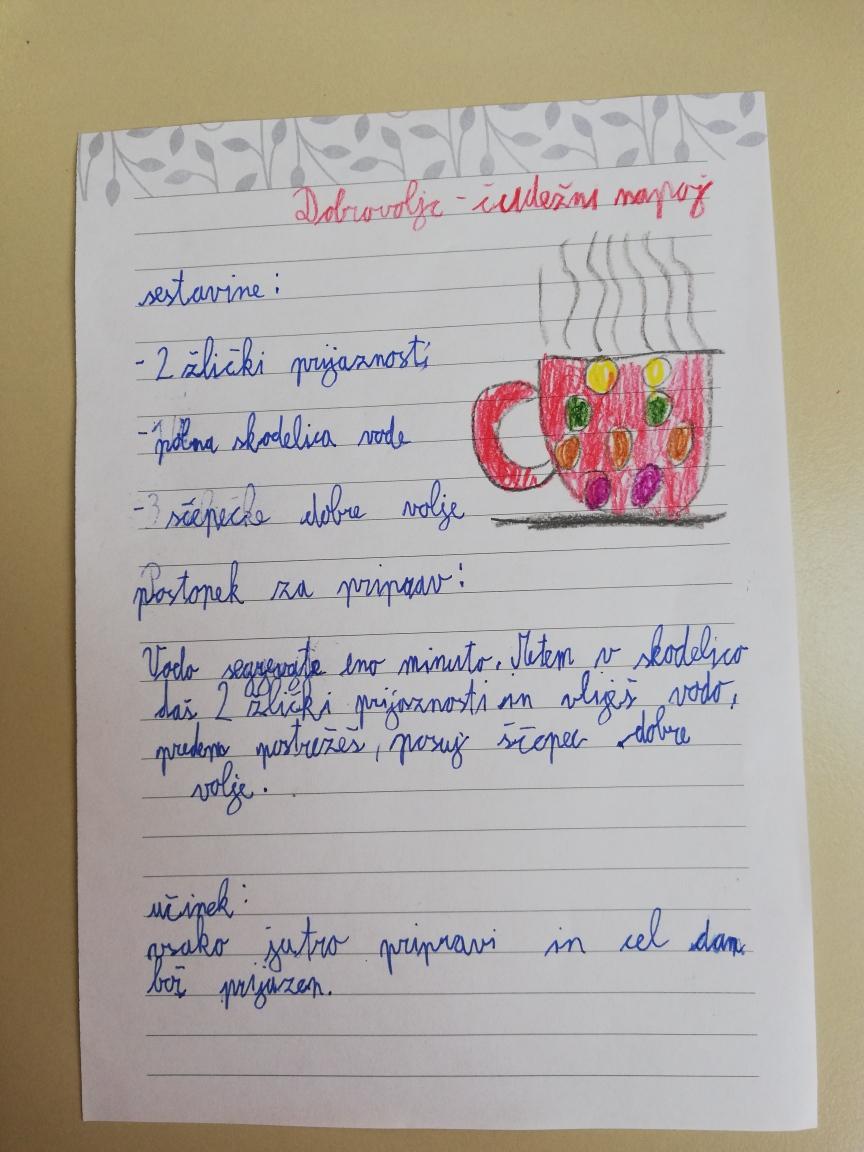 Dobrovolje - čudežni napoj
sestavine:
- 2 žlički prijaznosti
- polna skodelica vode
- 3 ščepečke dobre volje
Postopek za pripravo:
Vodo segrevate eno minuto. Metem v skodelico
daš 2 žlički prijaznosti in vliješ vodo,
predeno postrežeš, posuj ščepec dobre
volje.
učinek:
vsako jutro pripravi in cel dan
boš prijazen.